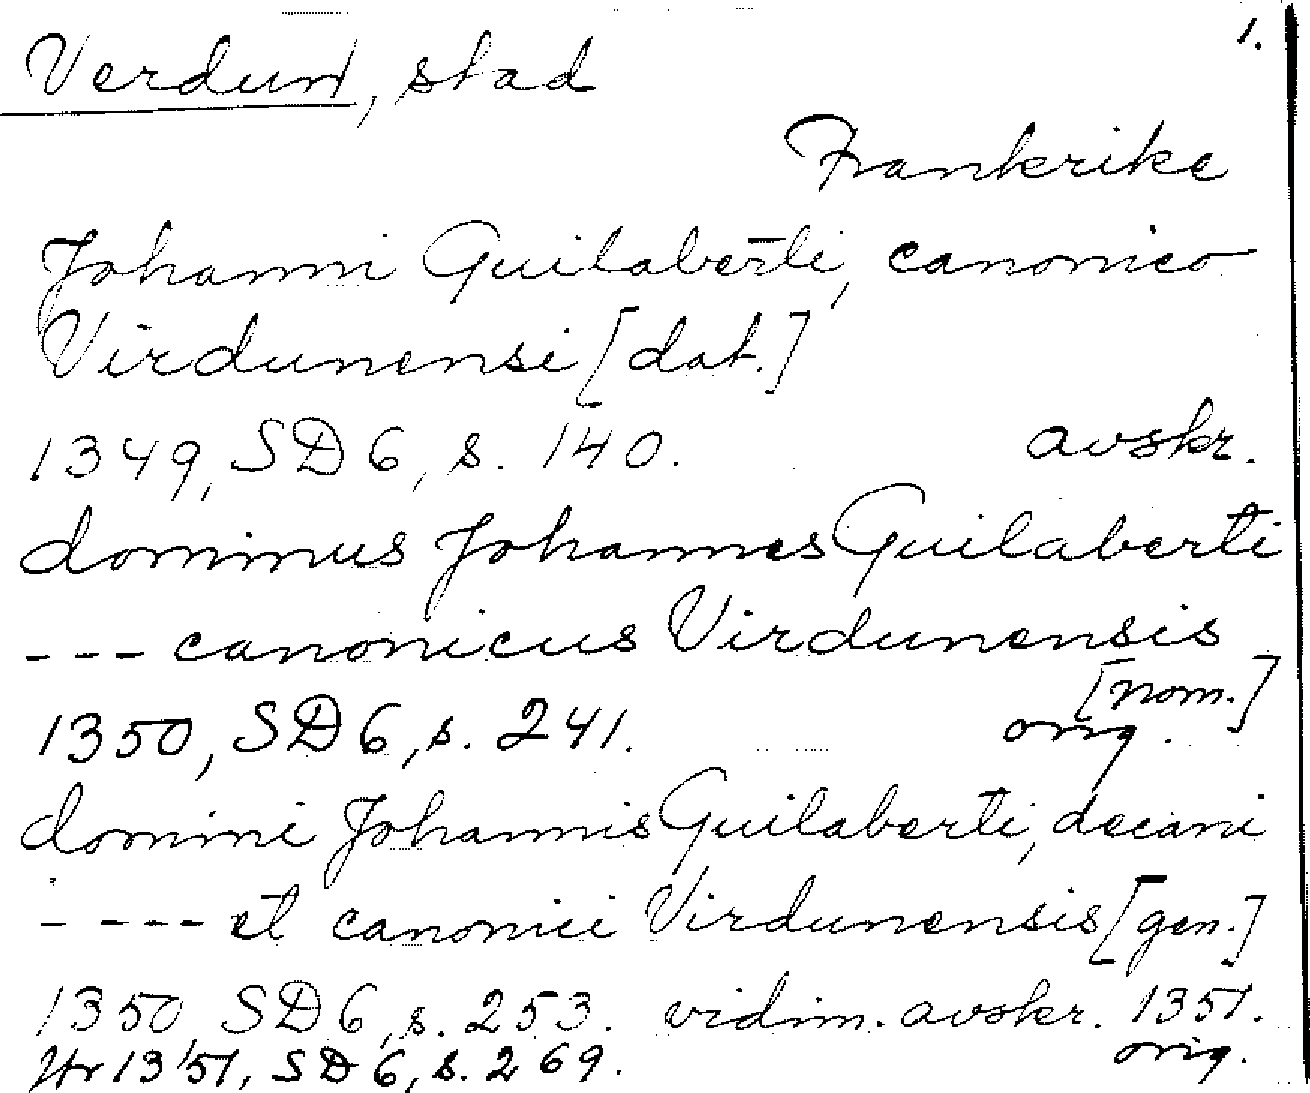 1.
Verdun, stad
Frankrike
Johanni Guilaberti, canonico
Virdunensi [dat.]
1349, SD 6, s. 140. avskr.
dominus Johannes Guilaberti
--- canonicus Virdunensis
[nom.]
1350, SD 6, s. 241. orig.
domini Johannis Guilaberti, decani
---- et canonici Virdunensis [gen.]
1350 SD 6, s. 253. vidim. avskr. 1351.
1351, SD 6, s. 269. orig.